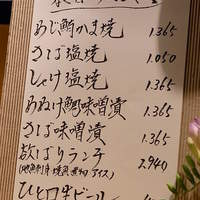 あじ鮪かま焼 1.365
さば塩焼 1.050
しゃけ塩焼 1.365
あぬけ鯛味噌漬 1.365
さば味噌漬 1.365
欲ばりランチ 2.940
ひと口生ビール